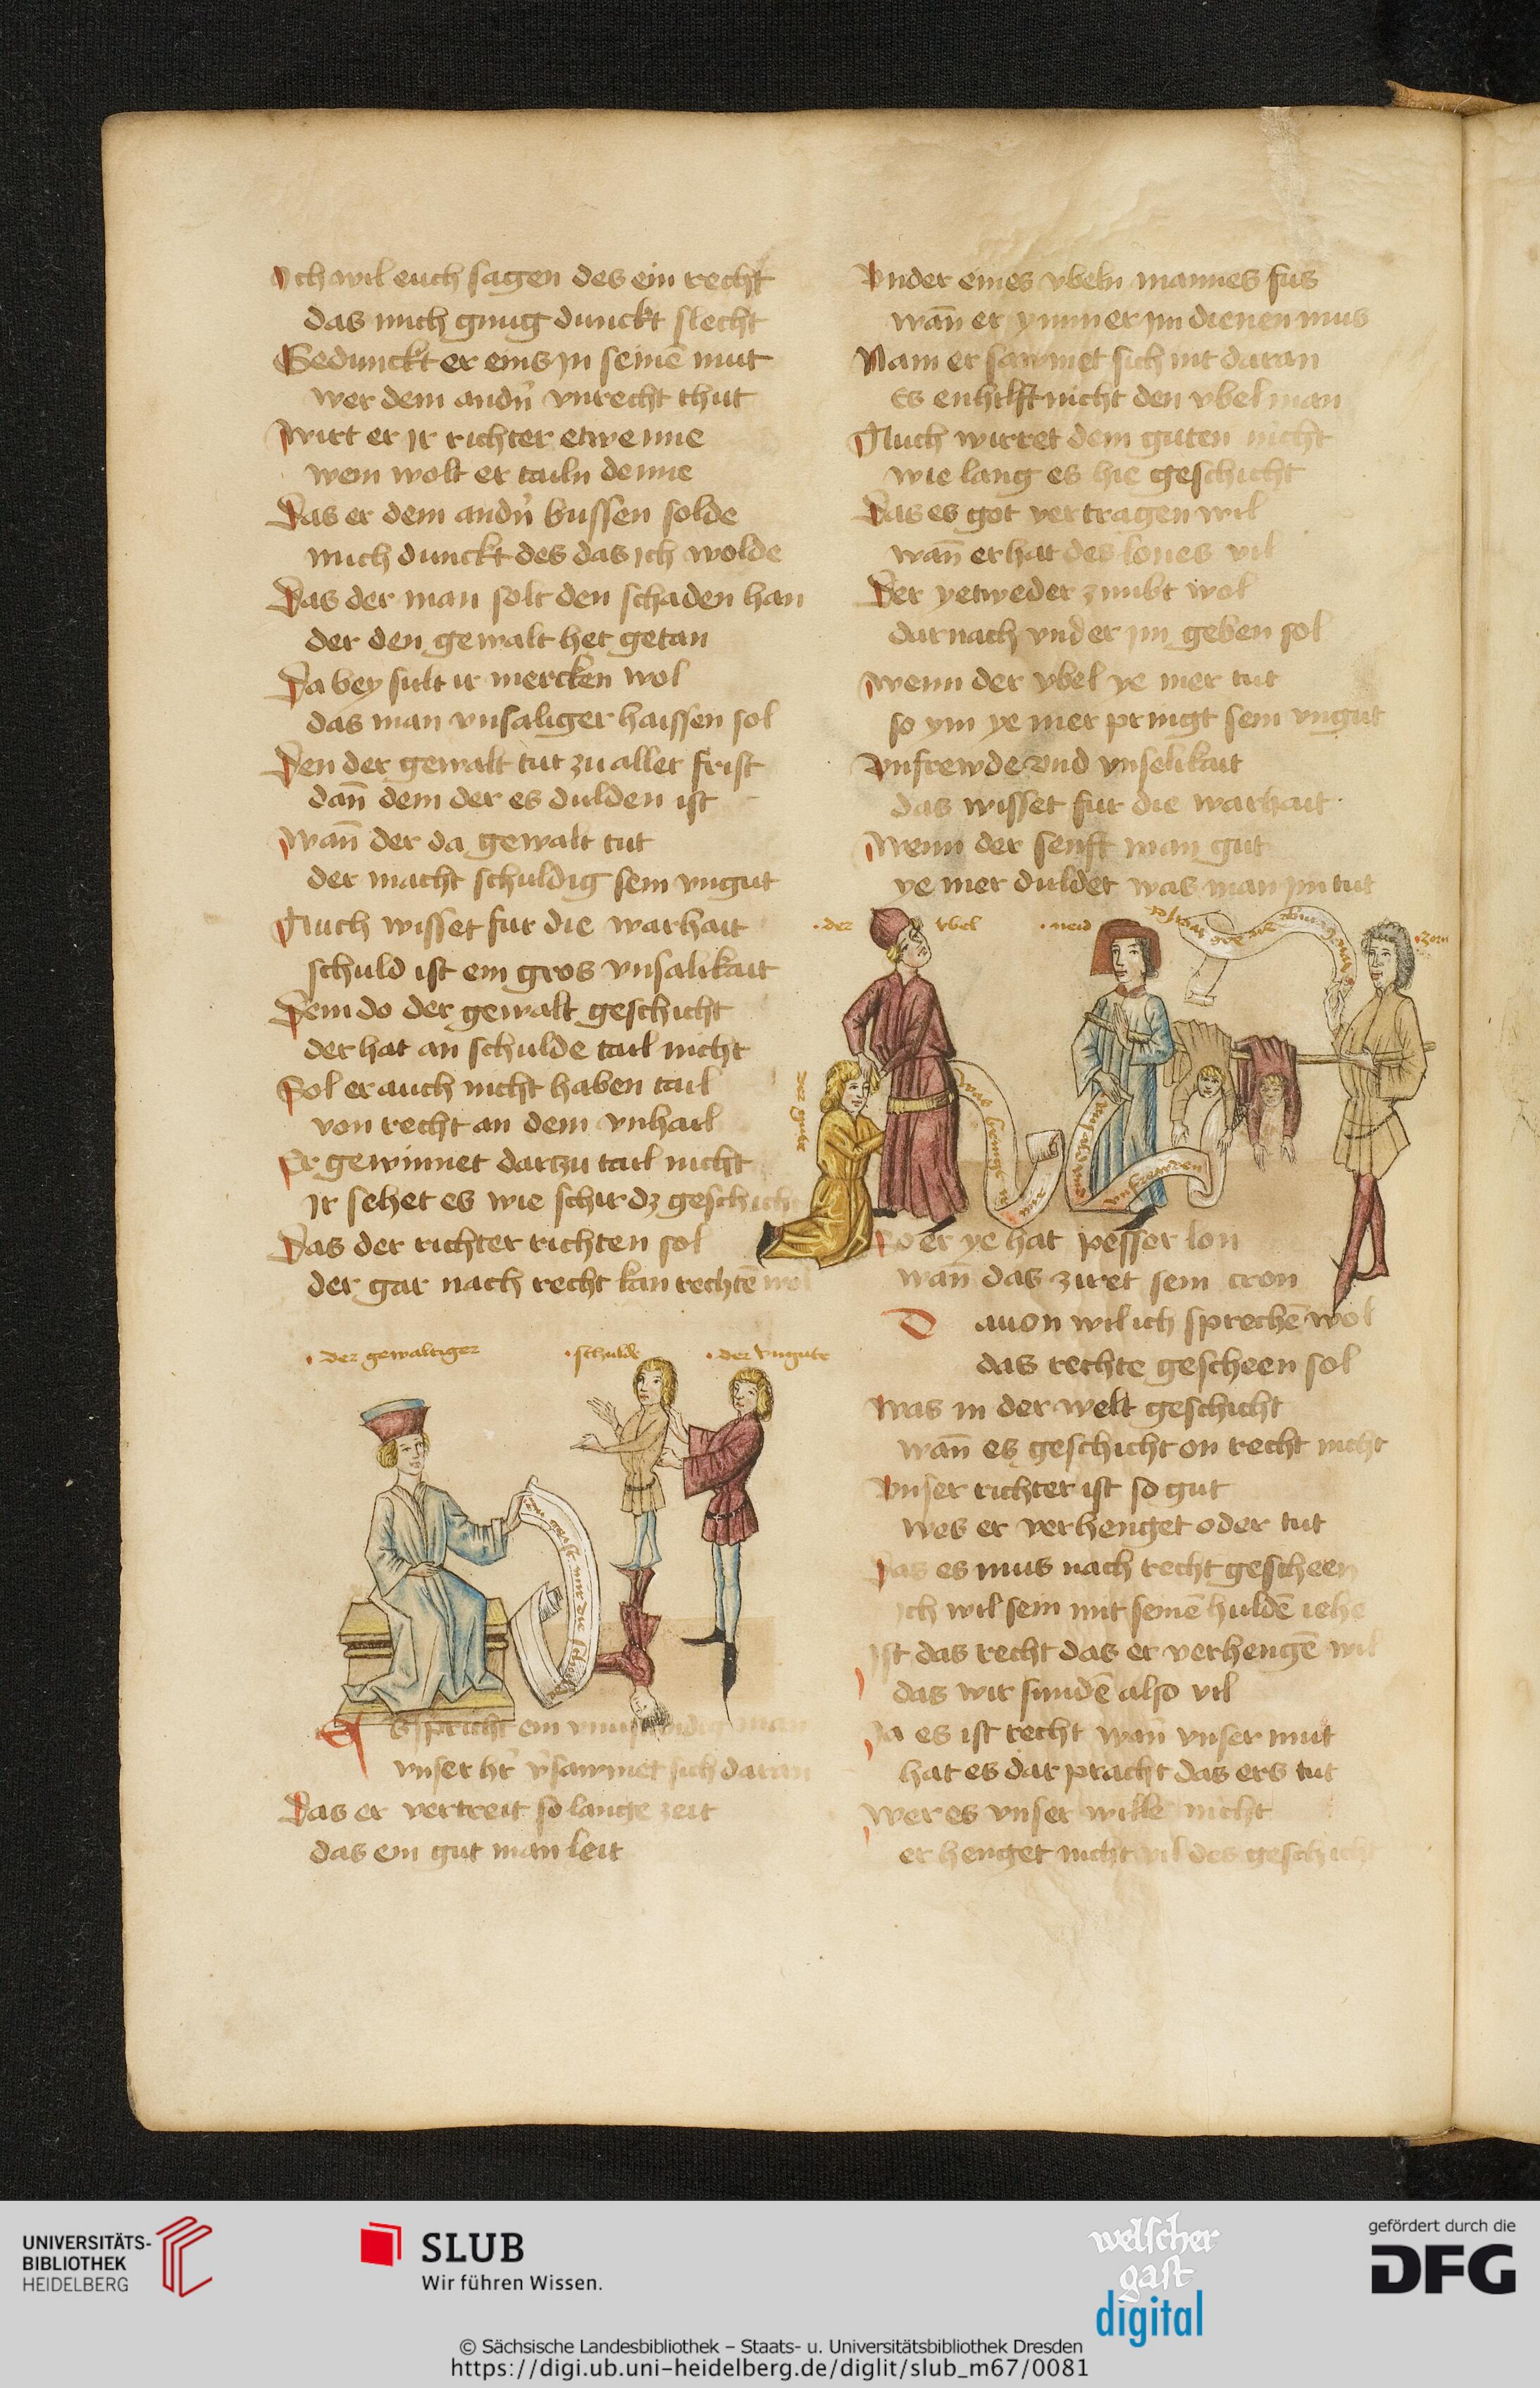 Ich wil euch sagen des ein recht
das mich gnug dunckt slecht
Gedunckt er eins jn seinē mut
wer dem andn̄ vnrecht thut
wirt er jr richter etwenne
wem wolt er tailn denne
Das er dem andn̄ bussen solde
mich dunckt des das ich wolde
Das der man solt den schaden han
der den gewalt het getan
Da bey sult ir mercken wol
das man vnsaliger haissen sol
Den der gewalt tut zu aller frist
dan̄ dem der es dulden ist
wan̄ der da gewalt tut
der macht schuldig sein vngut
Auch wisset fur die warhait
schuld ist ein gros vnsalikait
Dem do der gewalt geschicht
der hat an schulde tail nicht
Sol er auch nicht haben tail
von recht an dem vnhail
Er gewinnet darzu tail nicht
jr sehet es wie schir dz geschicht
Das der richter richten sol
der gar nach recht kan rechtē wol
der gewaltiger
schulde
der vngute
Es spricht ein man
vnser hr̄ v̄sawmet sich daran
Das er vertreit so lange zeit
das ein gut man leit
Vnder eines vbeln mannes fus
wan̄ er ymmer jm dienen mus
Nain er sawmet sich nit daran
Es enhilft nicht den vbel man
Auch wirret dem guten nicht
wie lang es hie geschicht
Das es got vertragen wil
wan̄ er hat des lones vil
Der yetweder zimbt wol
darnach vnd er jm geben sol
wenn der vbel ye mer tut
so ym ye mer pringt sein vngut
Vnfrewde vnd vnselikait
das wisset fur die warhait
wenn der senft man gut
ye mer duldet was man jm tut
der vbel
neid
zorn
der gute
So er ye hat pesser lon
wan̄ das ziret sein cron
Dauon wil ich sprechē wol
das rechte gescheen sol
was in der welt geschicht
wan̄ es geschicht on recht nicht
Vnser richter ist so gut
wes er verhenget oder tut
Das es mus nach recht gescheen
ich wil sein mit seinē huldē iehe
Ist das recht das er verhengē wil
das wir sundē also vil
Ja es ist recht wan̄ vnser mut
hat es dar pracht das ers tut
wer es vnser wille nicht
er henget nicht vil des geschicht
UNIVERSITÄTS-
BIBLIOTHEK
HEIDELBERG
SLUB
Wir führen Wissen.
welscher
gast
digital
gefördert durch die
DFG
© Sächsische Landesbibliothek – Staats- u. Universitätsbibliothek Dresden
https://digi.ub.uni-heidelberg.de/diglit/slub_m67/0081